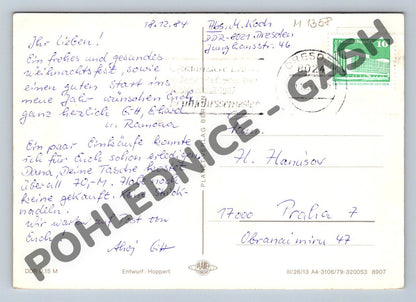 18.12.84
Abs. M. Koch
DDR-8021 Dresden
Junghansstr. 46
M 1358
16
Ihr Lieben!
Ein frohes und gesundes
Weihnachtsfest, sowie
einen guten Start ins
neue Jahr wünschen Euch
ganz herzlich Gitt,
u. Ramona
Ein paar Einkäufe konnte
ich für Euch schon erledigen.
Dana, Deine Tasche kostet
überall 70,-M. Hab noch
keine gekauft.
nadeln.
wir
Euch!
Ahoj Gitt
H. Hanušov
17000 Praha 7
Obránců míru 47
PLANET-VERLAG BERLIN
POHLEDNICE - GASH
DDR 0,15 M
Entwurf: Hoppert
PLANET
III/26/13 A4-3106/79-320053 8907